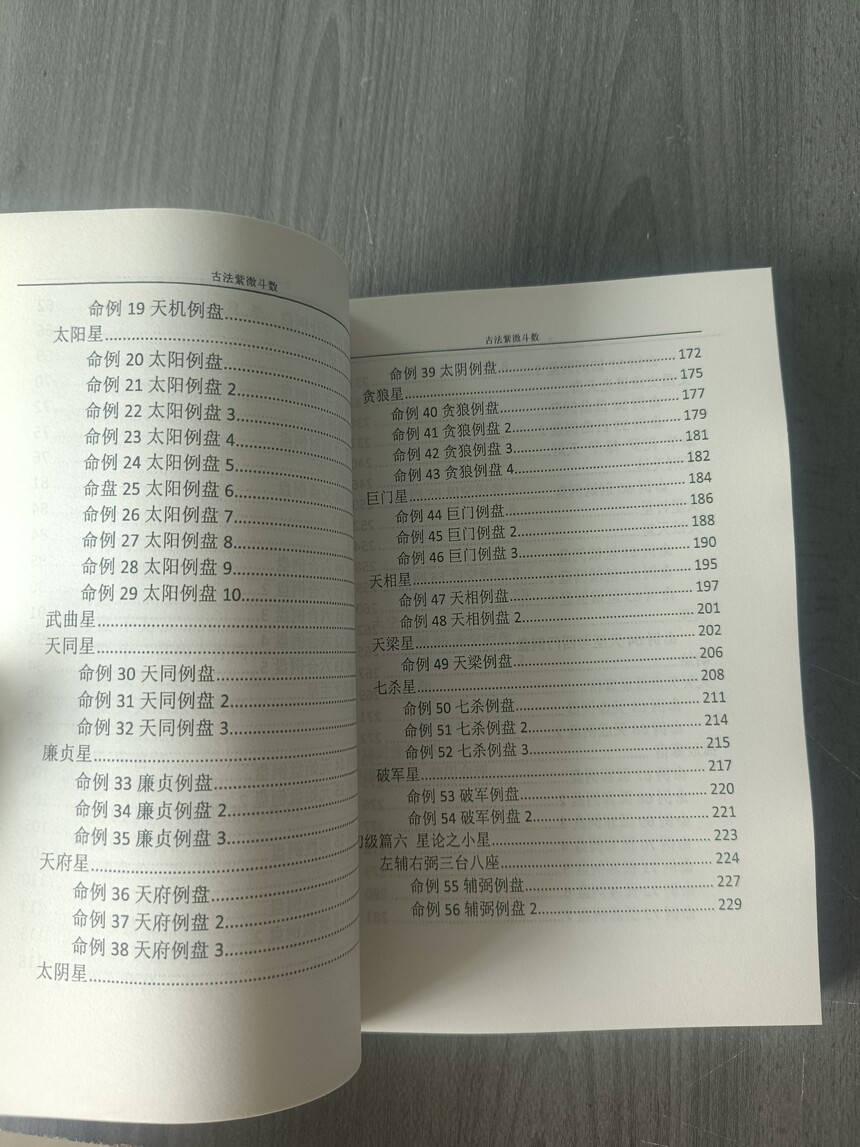 古法紫微斗数
命例 19 天机例盘
太阳星
命例 20 太阳例盘
命例 21 太阳例盘 2
命例 22 太阳例盘 3
命例 23 太阳例盘 4
命例 24 太阳例盘 5
命盘 25 太阳例盘 6
命例 26 太阳例盘 7
命例 27 太阳例盘 8
命例 28 太阳例盘 9
命例 29 太阳例盘 10
武曲星
天同星
命例 30 天同例盘
命例 31 天同例盘 2
命例 32 天同例盘 3
廉贞星
命例 33 廉贞例盘
命例 34 廉贞例盘 2
命例 35 廉贞例盘 3
天府星
命例 36 天府例盘
命例 37 天府例盘 2
命例 38 天府例盘 3
太阴星
古法紫微斗数
命例 39 太阴例盘 172
贪狼星 175
命例 40 贪狼例盘 177
命例 41 贪狼例盘 2 179
命例 42 贪狼例盘 3 181
命例 43 贪狼例盘 4 182
巨门星 184
命例 44 巨门例盘 186
命例 45 巨门例盘 2 188
命例 46 巨门例盘 3 190
天相星 195
命例 47 天相例盘 197
命例 48 天相例盘 2 201
天梁星 202
命例 49 天梁例盘 206
七杀星 208
命例 50 七杀例盘 211
命例 51 七杀例盘 2 214
命例 52 七杀例盘 3 215
破军星 217
命例 53 破军例盘 220
命例 54 破军例盘 2 221
初级篇六 星论之小星 223
左辅右弼三台八座 224
命例 55 辅弼例盘 227
命例 56 辅弼例盘 2 229